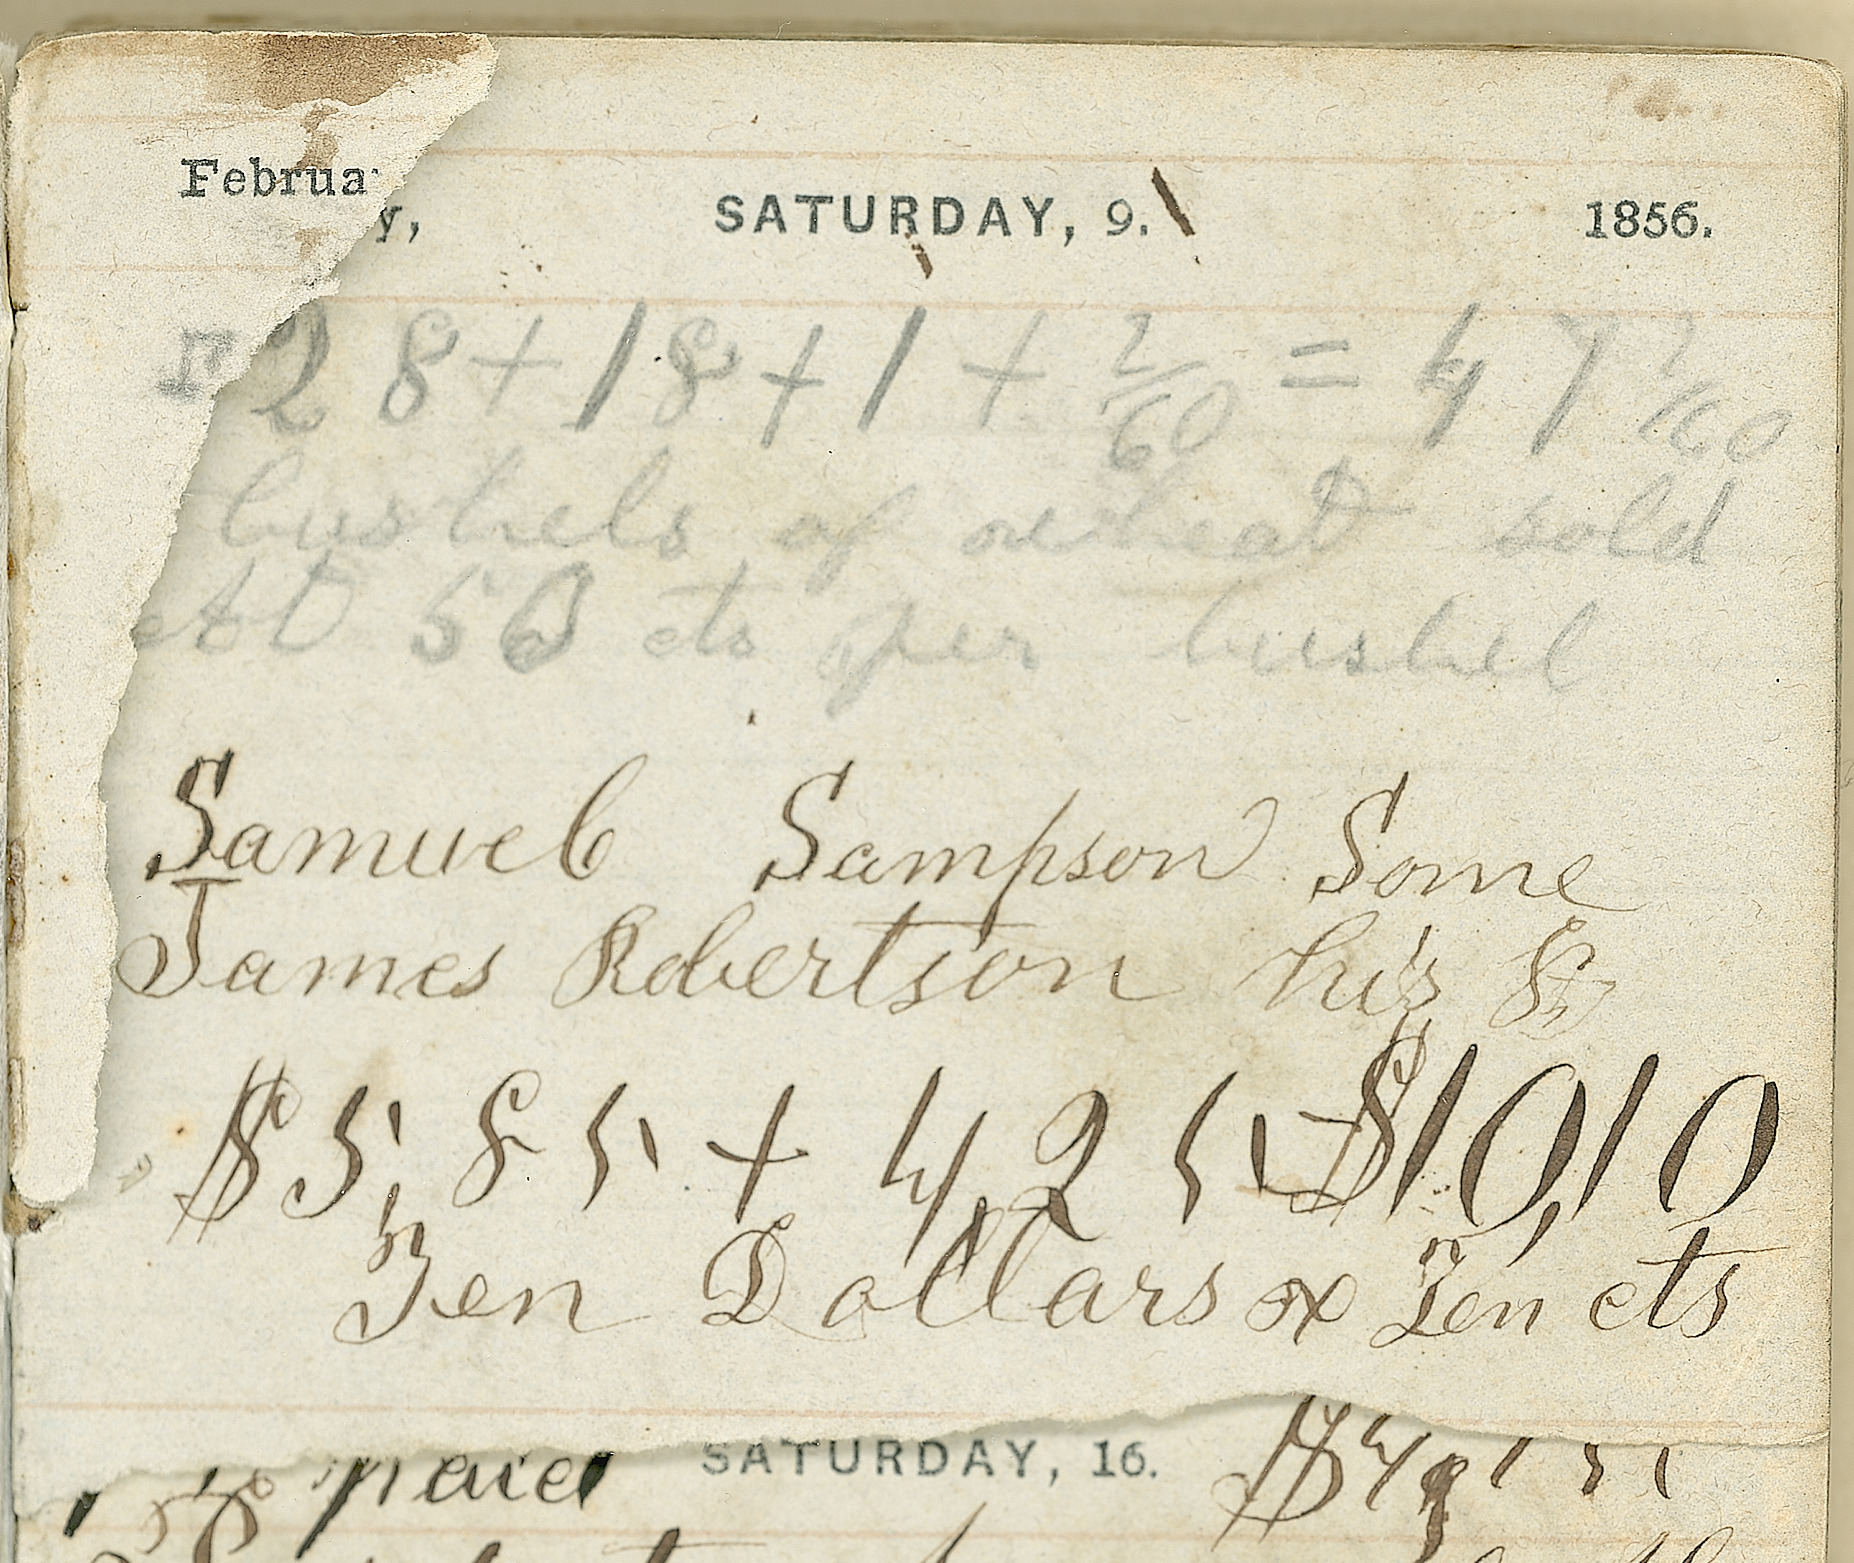 Februa
y, SATURDAY, 9. 1856.
28 + 18 + 1 + 2/60 = 47 2/60
bushels of wheat sold
At 50 cts per bushel
Samuel Sampson Some
James Robertson his &
$5,85 + 4,25 $10,10
Ten Dollars & Ten cts
paid SATURDAY, 16.